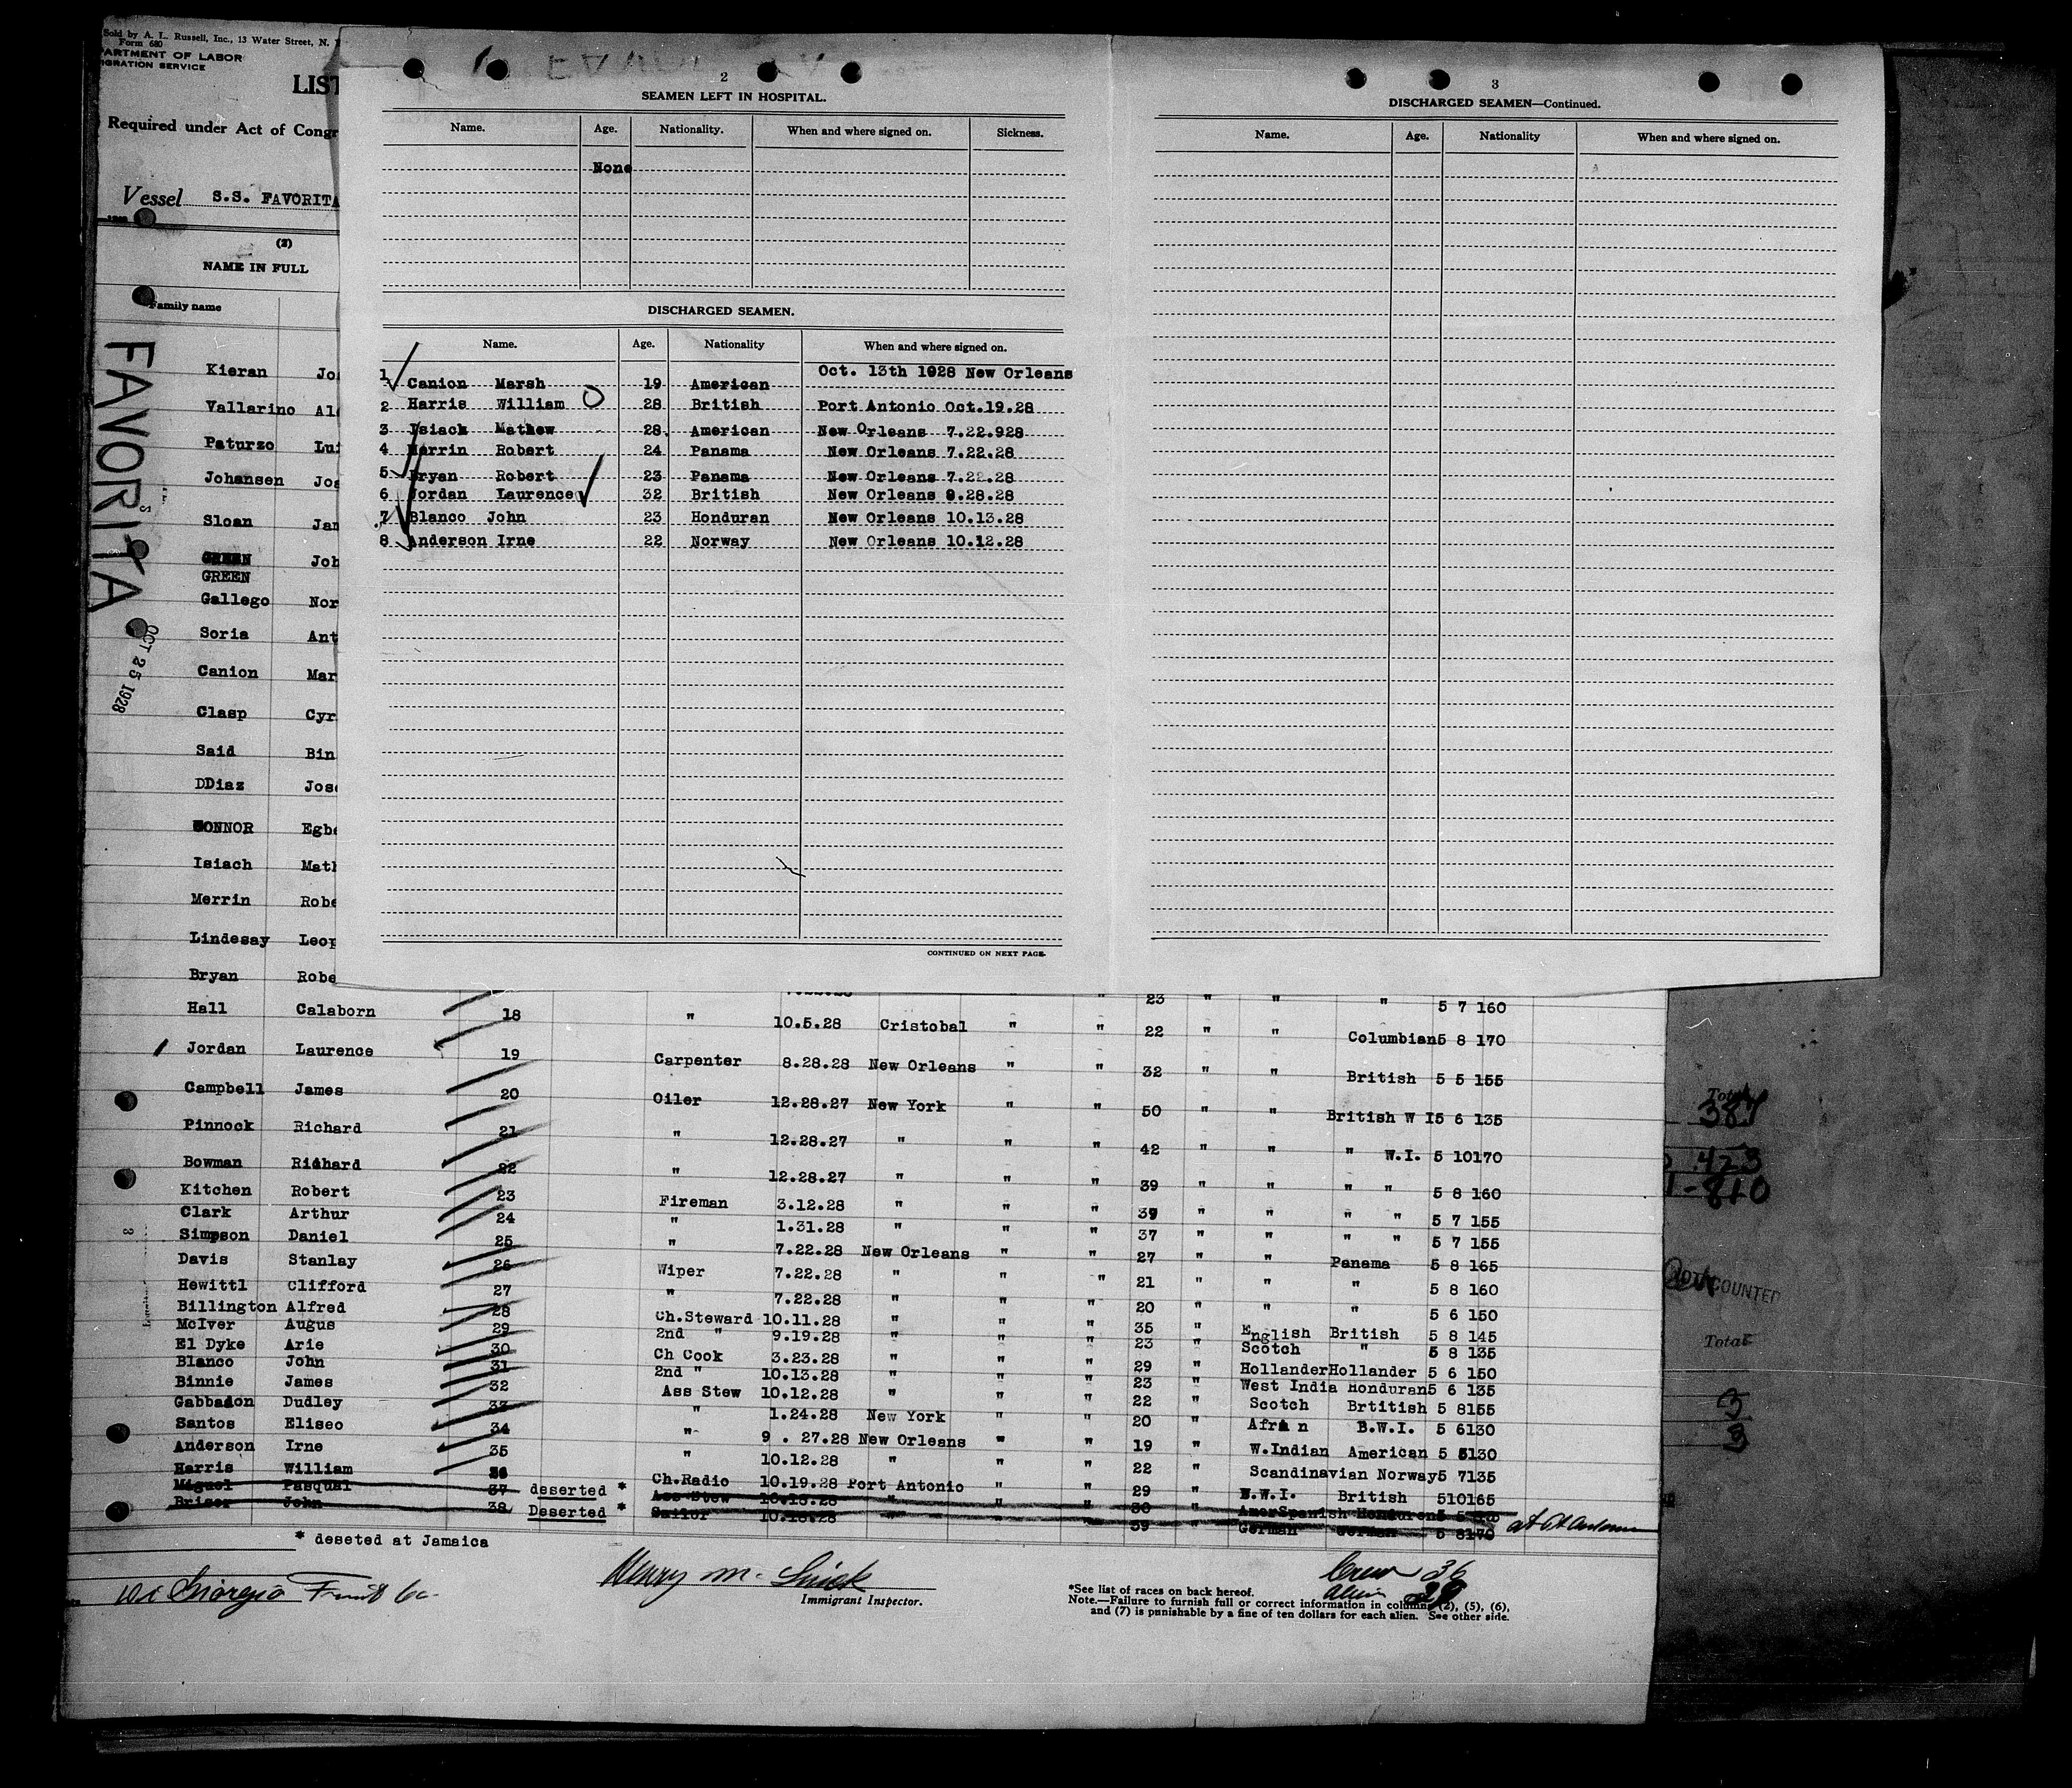 Sold by A. L. Russell, Inc., 13 Water Street, N.
Form 680
PARTMENT OF LABOR
IGRATION SERVICE
LIST
Required under Act of Congr
Vessel S.S. FAVORITA
(2)
NAME IN FULL
Family name
FAVORITA
OCT 25 1928
Kieran Jo
Vallarino Al
Paturzo Lui
Johansen Jos
Sloan Jam
GREEN Joh
GREEN
Gallego Nor
Soria Ant
Canion Mar
Clasp Cyr
Said Bin
DDiaz Jose
CONNOR Egbe
Isiach Math
Merrin Robe
Lindesay Leop
Bryan Robe
2
SEAMEN LEFT IN HOSPITAL.
Name. Age. Nationality. When and where signed on. Sickness.
None
DISCHARGED SEAMEN.
Name. Age. Nationality When and where signed on.
1 Canion Marsh 19 American Oct. 13th 1928 New Orleans
2 Harris William 28 British Port Antonio Oct.19.28
3 Isiack Mathew 28. American New Orleans 7.22.928
4 Merrin Robert 24 Panama New Orleans 7.22.28
5 Bryan Robert 23 Panama New Orleans 7.22.28
6 Jordan Laurence 32 British New Orleans 8.28.28
7 Blanco John 23 Honduran New Orleans 10.13.28
8 Anderson Irne 22 Norway New Orleans 10.12.28
CONTINUED ON NEXT PAGE.
3
DISCHARGED SEAMEN—Continued.
Name. Age. Nationality When and where signed on.
23 " " " 5 7 160
Hall Calaborn 18 " 10.5.28 Cristobal " " 22 " " Columbian5 8 170
Jordan Laurence 19 Carpenter 8.28.28 New Orleans " " 32 " " British 5 5 155
Campbell James 20 Oiler 12.28.27 New York " " 50 " " British W I5 6 135
Pinnock Richard 21 " 12.28.27 " " " 42 " " " W.I. 5 10170
Bowman Richard 22 " 12.28.27 " " " 39 " " " " 5 8 160
Kitchen Robert 23 Fireman 3.12.28 " " " 39 " " " " 5 7 155
Clark Arthur 24 " 1.31.28 " " " 37 " " " " 5 7 155
Simpson Daniel 25 " 7.22.28 New Orleans " " 27 " " Panama 5 8 165
Davis Stanlay 26 Wiper 7.22.28 " " " 21 " " " 5 8 160
Hewittl Clifford 27 " 7.22.28 " " " 20 " " " 5 6 150
Billington Alfred 28 Ch.Steward 10.11.28 " " " 35 " English British 5 8 145
McIver Augus 29 2nd " 9.19.28 " " " 23 " Scotch " 5 8 135
El Dyke Arie 30 Ch Cook 3.23.28 " " " 29 " Hollander Hollander 5 6 150
Blanco John 31 2nd " 10.13.28 " " " 23 " West India Honduran5 6 135
Binnie James 32 Ass Stew 10.12.28 " " " 22 " Scotch Brtitish 5 8155
Gabbadon Dudley 33 " 1.24.28 New York " " 20 " B.W.I. 5 6130
Santos Eliseo 34 " 9 . 27.28 New Orleans " " 19 " W.Indian American 5 5130
Anderson Irne 35 " 10.12.28 " " " 22 " Scandinavian Norway5 7135
Harris William 36 Ch.Radio 10.19.28 Port Antonio " " 29 " B.W.I. British 510165
Miguel Pasqual 37 deserted * Ass Stew 10.18.28 " " " 30 " AmerSpanish Honduren5
John 38 Deserted * Sailor 10.18.28 " " 39 " German German 5 8170
* deseted at Jamaica
Di Giorgio Fruit Co.
Immigrant Inspector.
Crew 36
Alien 29
*See list of races on back hereof.
Note.—Failure to furnish full or correct information in columns (2), (5), (6),
and (7) is punishable by a fine of ten dollars for each alien. See other side.
Total
387
423
810
COUNTED
Total
3
3